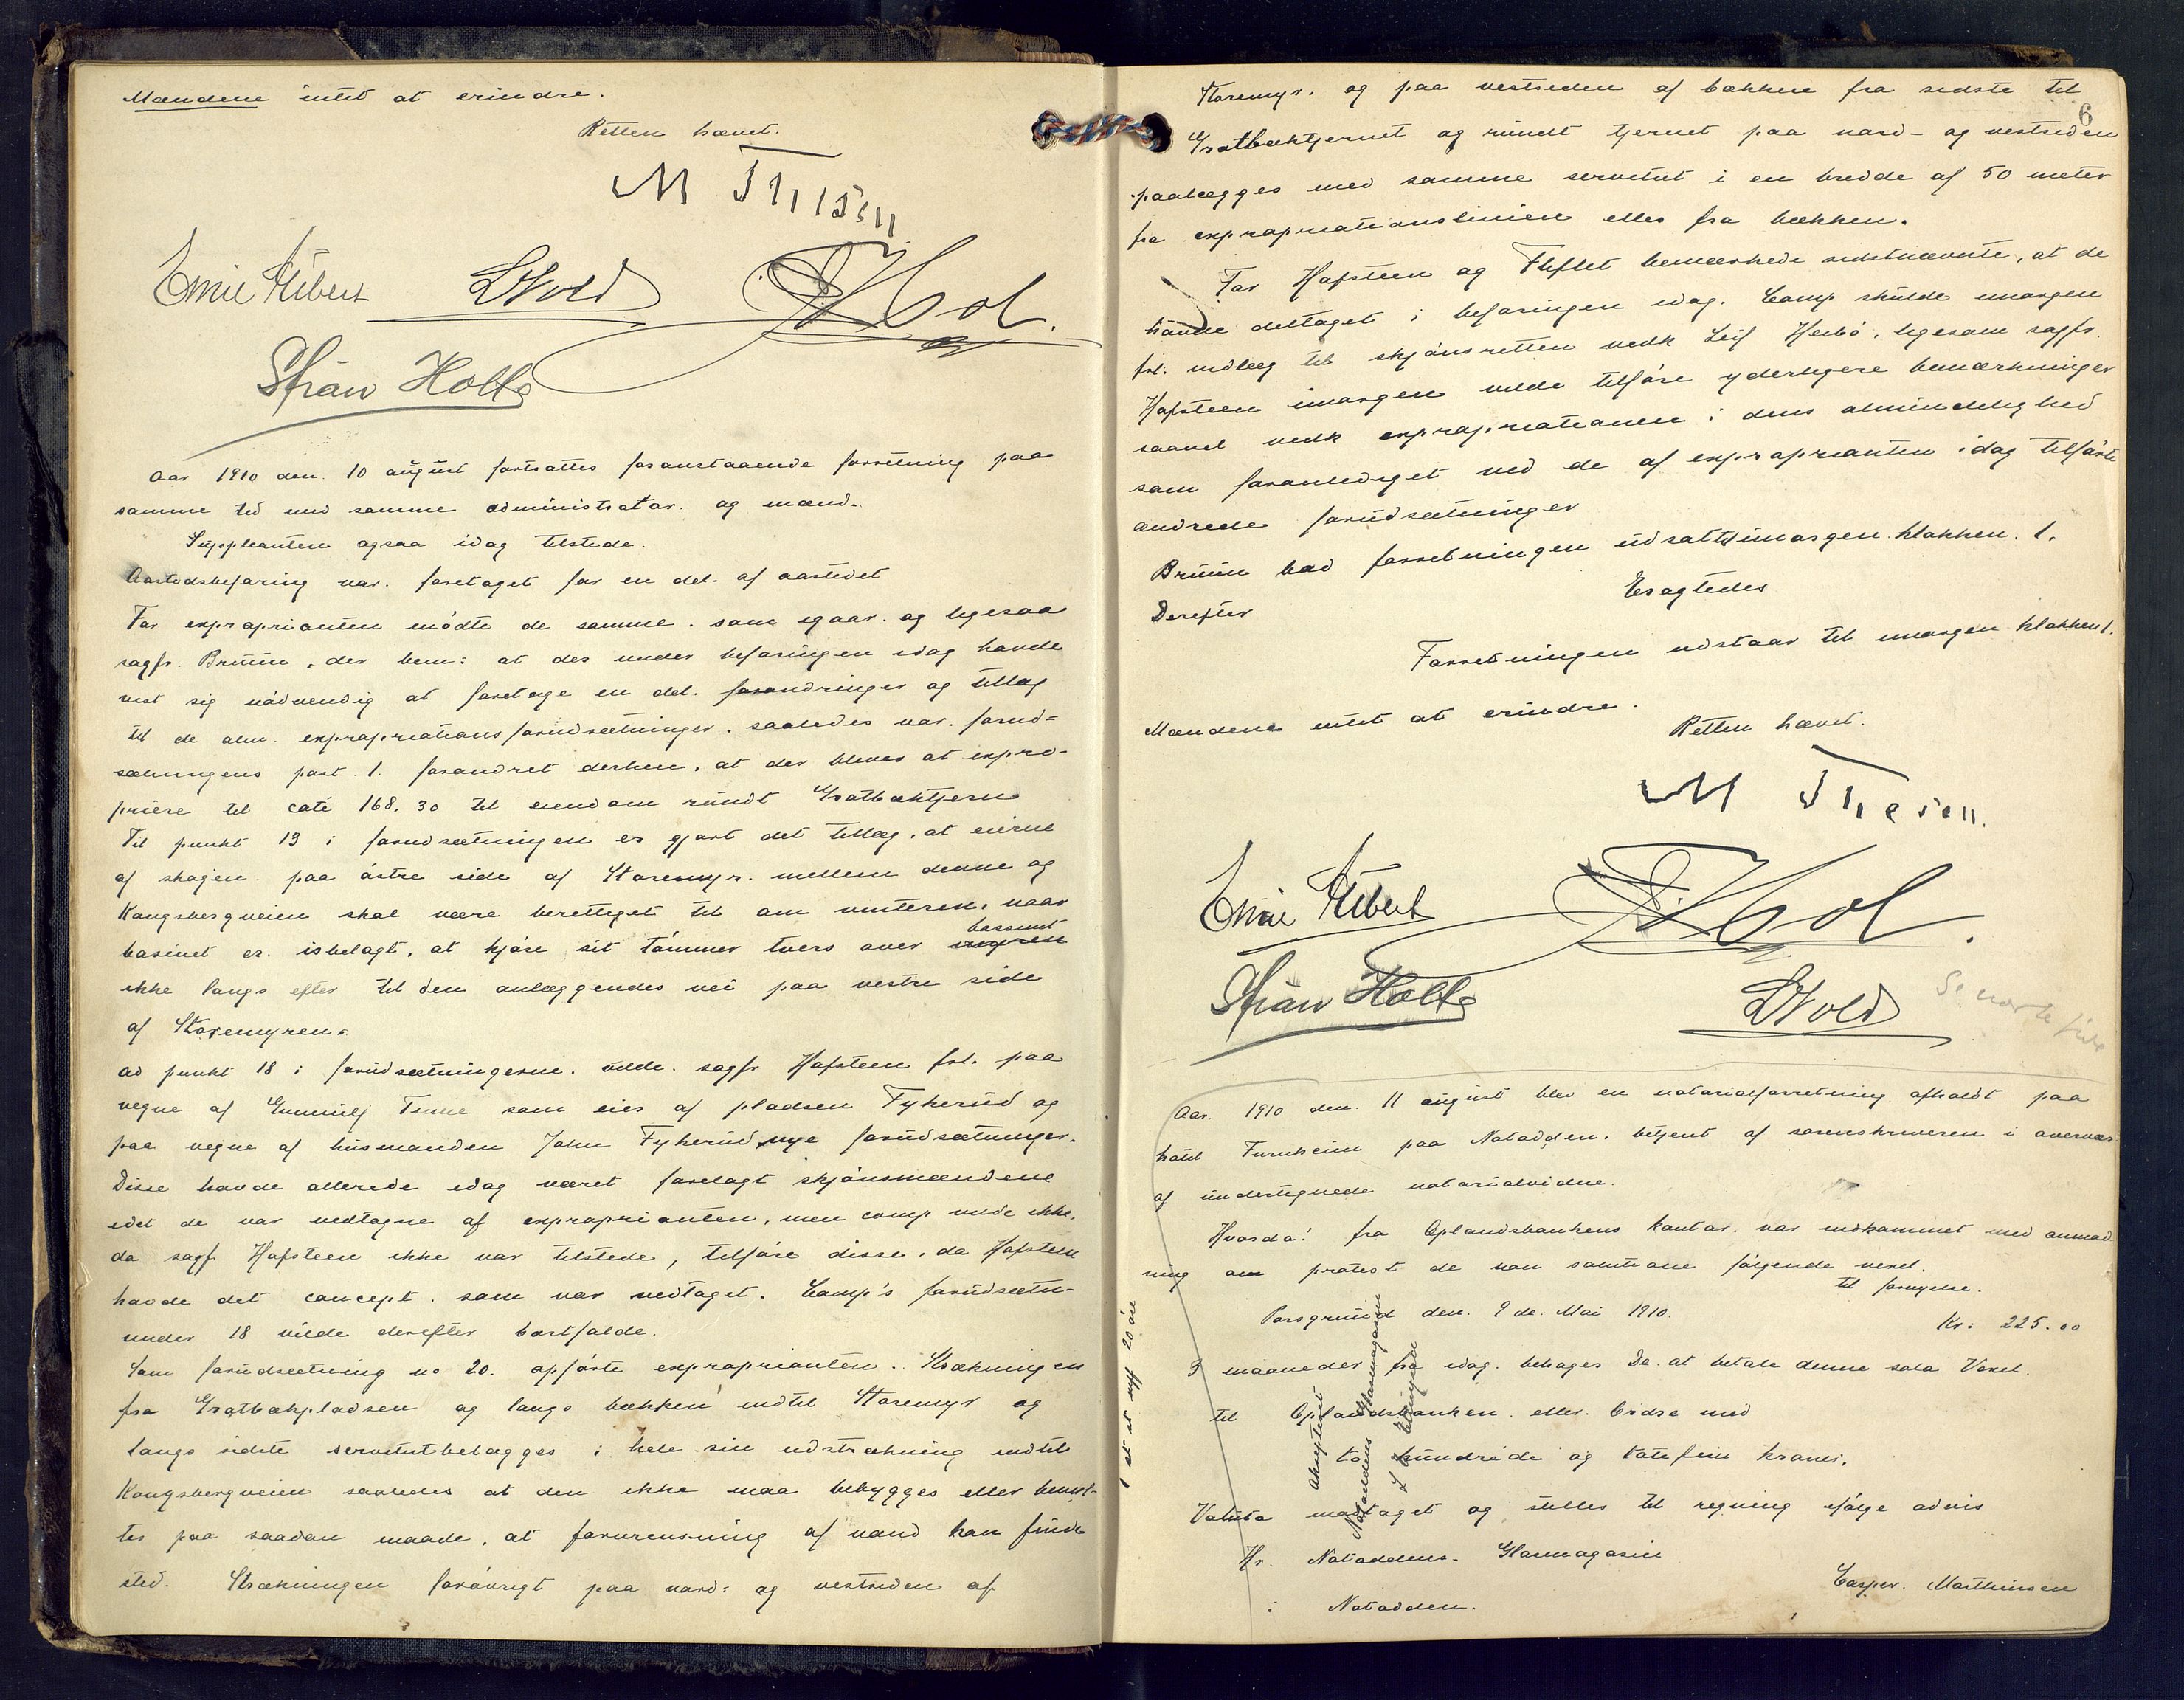 Mændene intet at erindre.
Retten hævet.
M Thesen
Emil Stibert LWold Hol.
Stian Holte
Aar 1910 den 10 august fortsattes foranstaaende forretning paa
samme sted med samme administrator og mænd.
Suppleanten ogsaa idag tilstede.
Aastedsbefaring var foretaget for en del af aastedet
For exproprianten mødte de samme som igaar og ligesaa
sagfr. Bruun, der bem: at der under befaringen idag havde
vist sig nødvendig at foretage en del forandringer og tillæg
til de alm. expropriationsforudsætninger. saaledes var forud-
sætningens post 1. forandret derhen, at der bliver at expro-
priere til cote 168.30 til eiendom rundt Gratbæktjern
Til punkt 13 i forudsætningen er gjort det tillæg, at eierne
af skogen paa østre side af Storemyr mellem denne og
Kongsbergveien skal være berettiget til om vinteren, naar
basinet er isbelagt, at kjøre sit tømmer tvers over bassinet
ikke langs efter til den anlæggendes vei paa vestre side
af Storemyren.
ad punkt 18 i forudsætningerne vilde sagfr Hofsteen frl. paa
vegne af Gunnulf Tinne som eier af pladsen Fykerud og
paa vegne af husmanden John Fykerud nye forudsætninger.
Disse havde allerede idag været forelagt skjønsmændene
idet de var vedtagne af exproprianten, men comp vilde ikke,
da sagf. Hofsteen ikke var tilstede, tilføre disse, da Hofsteen
havde det concept som var vedtaget. Comp's forudsætn-
under 18 vilde derefter bortfalde.
Som forudsætning no 20. opførte exproprianten. Strækningen
fra Gratbækpladsen og langs bækken indtil Storemyr og
langs sidste servitutbelægges i hele sin udstrækning indtil
Kongsbergveien saaledes at den ikke maa bebygges eller benyt-
tes paa saadan maade, at forurensning af vand kan finde
sted. Strækningen forøvrigt paa nord- og vestsiden af
6
Storemyr. og paa vestsiden af bækken fra sidste til
Gratbæktjernet og rundt tjernet paa nord- og vestsiden
paalægges med samme servitut i en bredde af 50 meter
fra expropriationslinien eller fra bækken.
For Hofsteen og Fliflet bemærkede sidstnævnte, at de
havde deltaget i befaringen idag. Comp skulde imorgen
frl. indlæg til skjønsretten vedk Leif Heibø, ligesom sagfr.
Hofsteen imorgen vilde tilføre yderligere bemærkninger
saavel vedk expropriationen i dens almindelighed
som foranlediget ved de af exproprianten idag tilførte
ændrede forudsætninger
Bruun bad forretningen udsat til imorgen klokken 1.
Eragtedes
Derefter
Forretningen udstaar til imorgen klokken 1.
Mændene intet at erindre.
Retten hævet.
M Thesen.
Emil Stibert Hol.
Stian Holte LWold
Se næste side
Aar 1910 den 11 august blev en notarialforretning afholdt paa
hotel Furuheim paa Notodden, betjent af sorenskriveren i overvær
af undertegnede notarialvidne.
Hvorda! fra Oplandsbankens kontor var indkommet med anmod
ning om protest de non solutione følgende vexel.
til fornyelse.
Porsgrund den 9de Mai 1910. Kr: 225.00
3 maaneder fra idag behager De at betale denne sola Vexel.
til Oplandsbanken eller Ordre med
to hundrede og totifem kroner.
Valuta modtaget og stilles til regning ifølge advis
Hr. Notoddens Glasmagasin
i Notodden. Casper Marthinsen
Akcepteret
Notoddens Glasmagasin